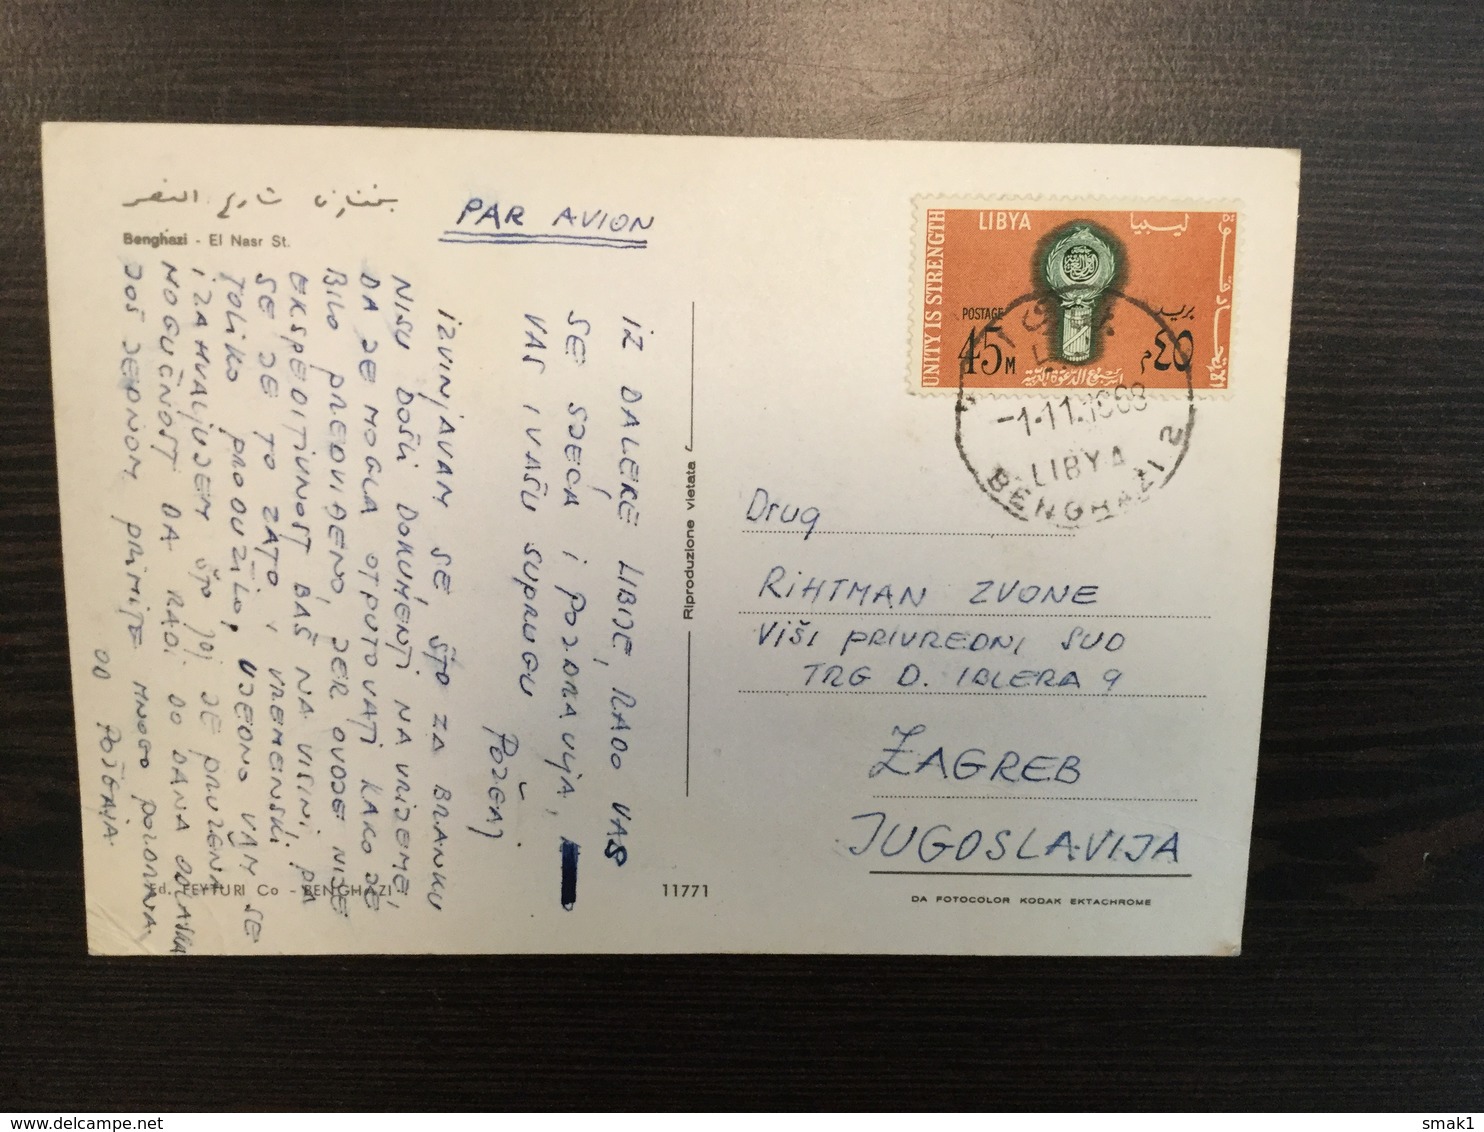 بنغازي شارع النصر
Benghazi - El Nasr St.
PAR AVION
IZ DALEKE LIBIJE, RADO VAS
SE SJEĆA I POZDRAVLJA,
VAS I VAŠU SUPRUGU
POŽGAJ
IZVINJAVAM SE, ŠTO ZA BRANKU
NISU DOŠLI DOKUMENTI NA VRIJEME,
DA JE MOGLA OTPUTOVATI KAKO JE
BILO PREDVIĐENO, JER OVDJE NIJE
EKSPEDITIVNOST BAŠ NA VISINI, PA
SE JE TO ZATO I VREMENSKI
TOLIKO PRODUŽILO, UJEDNO VAM SE
IZAHVALJUJEM ŠTO JOJ JE PRUŽENA
MOGUĆNOST DA RADI DO DANA ODLASKA
JOŠ JEDNOM PRIMITE MNOGO POZDRAVA
OD POŽGAJA
Ed. FEYTURI Co - BENGHAZI
11771
Riproduzione vietata
UNITY IS STRENGTH
LIBYA ليبيا
POSTAGE بريد
45M ٤٥م
-1.11.1968
LIBYA
BENGHAZI 2
Drug
RIHTMAN ZVONE
VIŠI PRIVREDNI SUD
TRG D. IBLERA 9
ZAGREB
JUGOSLAVIJA
DA FOTOCOLOR KODAK EKTACHROME
smak1